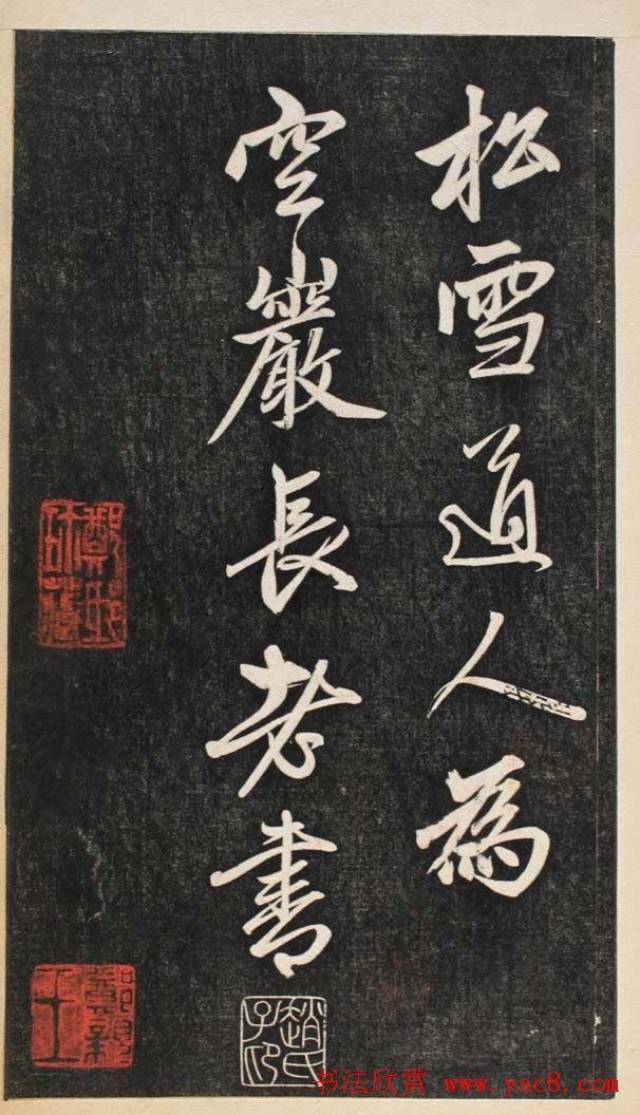 松雪道人為
空巖長老書
趙氏子印
书法欣赏 www.yac8.com